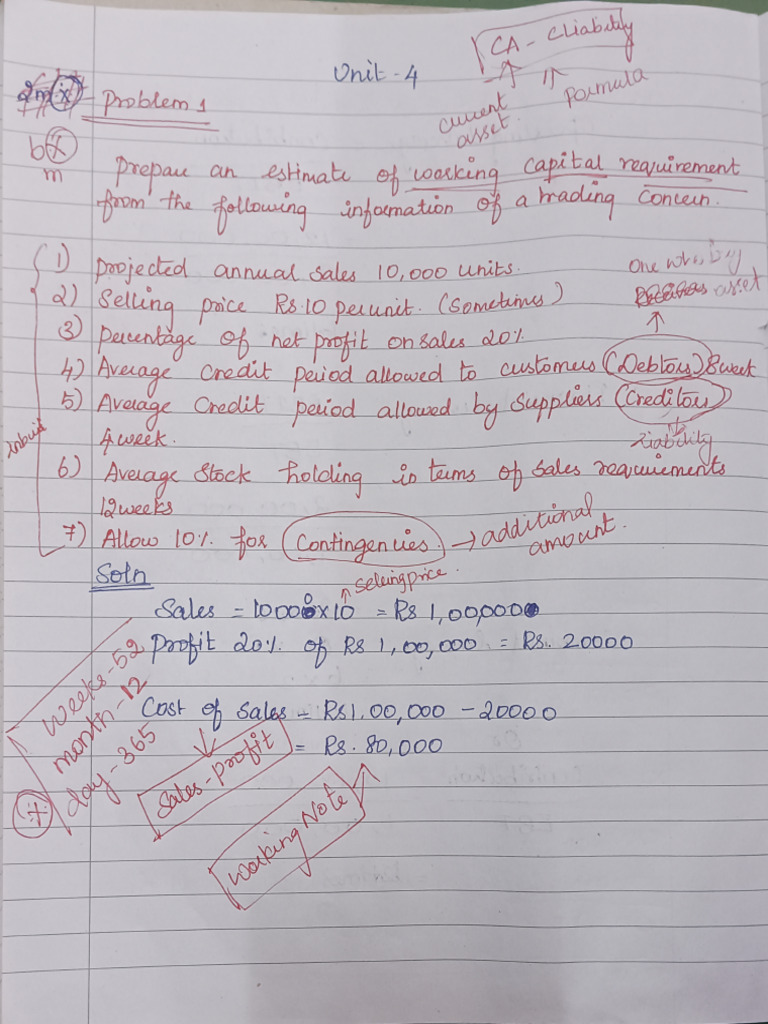 CA - Cliability
Unit - 4
Problem 1
current asset
formula
Prepare an estimate of working capital requirement
from the following information of a trading concern.
1) Projected annual sales 10,000 units.
2) Selling price Rs.10 per unit. (Sometimes)
One who buy
asset
3) Percentage of net profit on sales 20%
4) Average credit period allowed to customers (Debtors) 8 week
5) Average Credit period allowed by suppliers (Creditors)
4 week.
liability
6) Average Stock holding in terms of sales requirements
12 weeks
7) Allow 10% for (Contingencies) → additional
amount.
Soln
selling price
Sales = 10000 x 10 = Rs 1,00,000
Profit 20% of Rs 1,00,000 = Rs. 20000
weeks - 52
month - 12
day - 365
Cost of Sales = Rs 1,00,000 - 20000
= Rs. 80,000
Sales - profit
Working Note